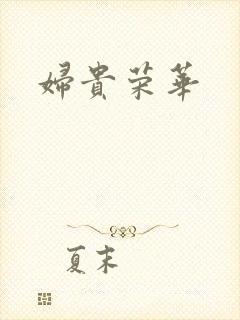 婦貴荣華
夏末